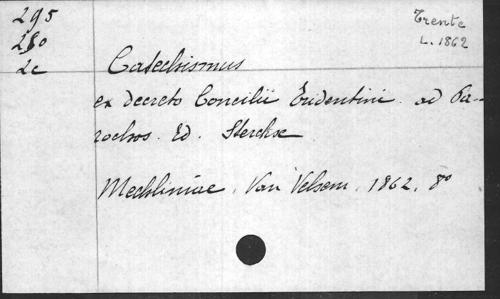 295
Trente
L. 1862
2c
Catechismus
ex decreto Concilii Tridentini ad Pa-
rochos. Ed. Sterckx
Mechliniae, Van Velsem, 1862, 8º